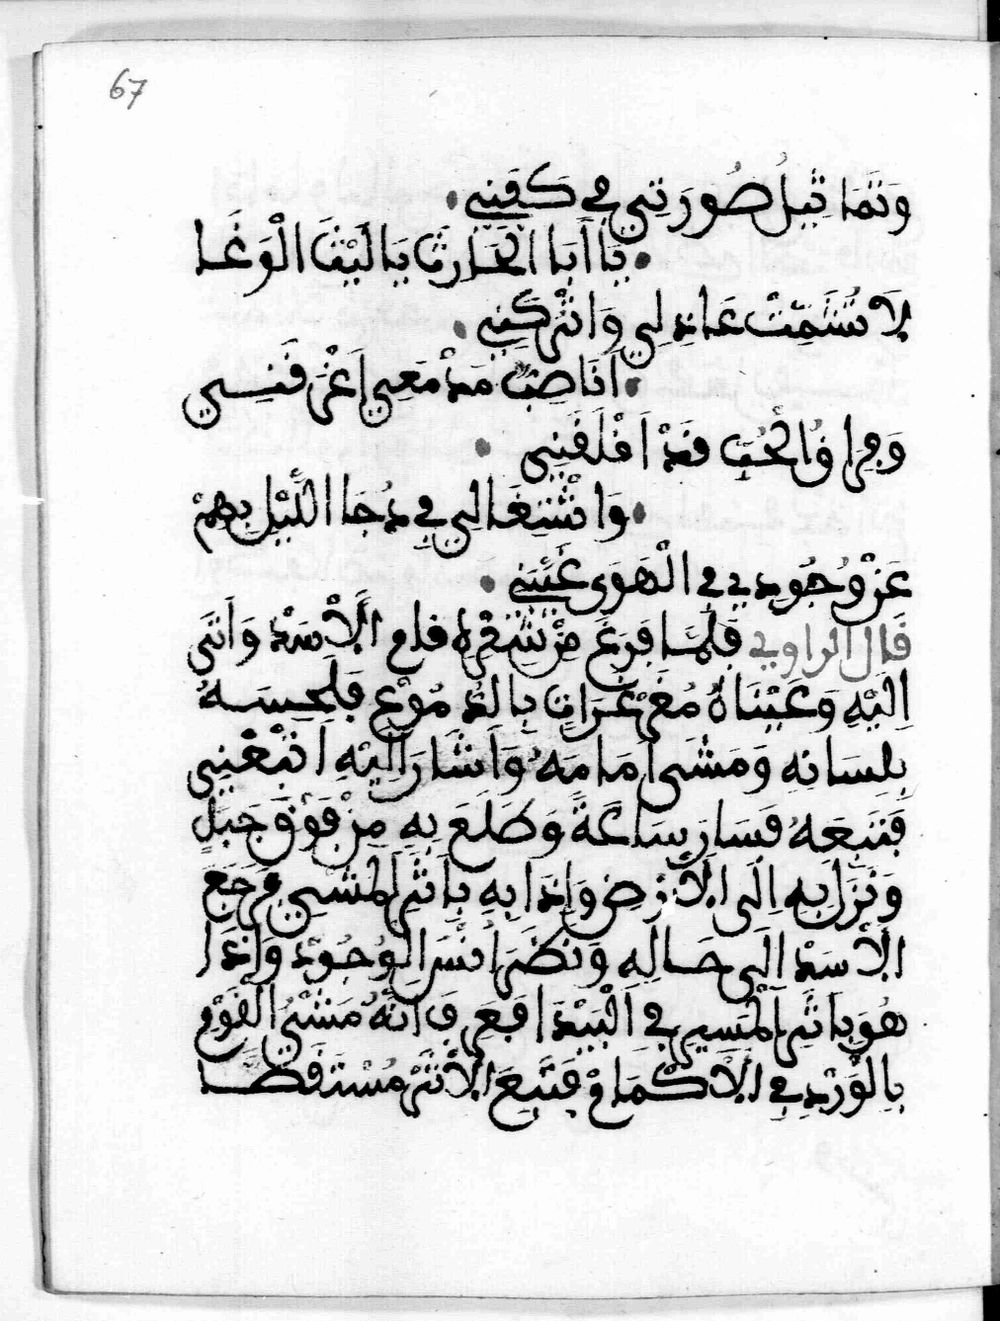 67
وَتَمَاثِيلُ صُورَتِي فِي كَفَنِي
يَا أَبَا الحَارِثْ يَا لَيْثَ الْوَغَا
لَا تُشَمِّتْ عَاذِلِي وَاتْرُكْنِي
أَنَا صَبٌّ مَدْمَعِي أَغْرَقَنِي
وَفِرَاقُ الْحُبِّ قَدْ أَقْلَقَنِي
وَاشْتِغَالِي فِي دُجَا اللَّيْلِ بِهِمْ
عَنْ وُجُودِي فِي الْهَوَى غَيَّبَنِي
قَال الراوي فَلَمَّا فَرَغَ مِنْ شِعْرِهِ قام الْأَسَدْ وَأَتَى
إِلَيْهِ وَعَيْنَاهُ مُغَرْغَرَات بِالدُّمُوعِ فَلَحِسَهُ
بِلِسَانِهِ وَمَشَى أَمَامَهُ وَأَشَارَ إِلَيْهِ اتْبَعْنِي
فَتَبِعَهُ فَسَارَ سَاعَةً وَطَلَعَ بِهِ مِنْ فَوْقِ جَبَلٍ
وَنَزَلَ بِهِ إِلَى الْأَرْضِ وَإِذَا بِهِ بِأَثَرِ الْمَشْيِ فَرَجَعَ
الْأَسَدْ إِلَى حَالِهِ وَنَظَرَ أُنْسَ الْوُجُودْ وَإِذَا
هُوَ بِأَثَرِ الْمَسِيرِ فِي الْبَيْدَا فَعَرِفَ أَنَّهُ مَشْيُ الْقَوْمِ
بِالْوَرْدِ فِي الْأَكْمَامْ فَتَبِعَ الْأَثَرْ مُسْتَقِظًا